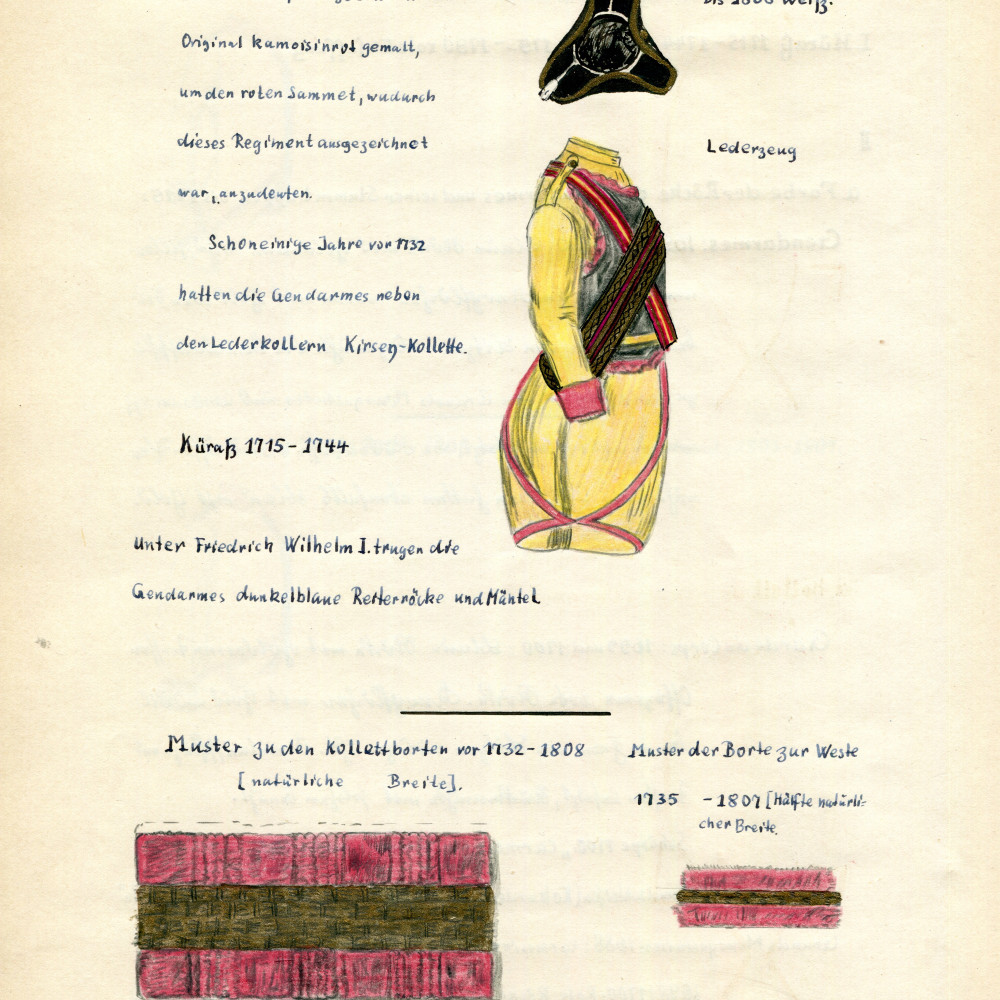 bis 1808 weiß.
Original kamoisinrot gemalt,
um den roten Sammet, wodurch
dieses Regiment ausgezeichnet
war, anzudeuten.
Lederzeug
Schon einige Jahre vor 1732
hatten die Gendarmes neben
den Lederkollern Kirsey-Kollette.
Küraß 1715-1744
Unter Friedrich Wilhelm I. trugen die
Gendarmes dunkelblaue Reiterröcke und Mäntel
Muster zu den Kollettborten vor 1732-1808
[natürliche Breite].
Muster der Borte zur Weste
1735 -1807 [Hälfte natürli-
cher Breite.